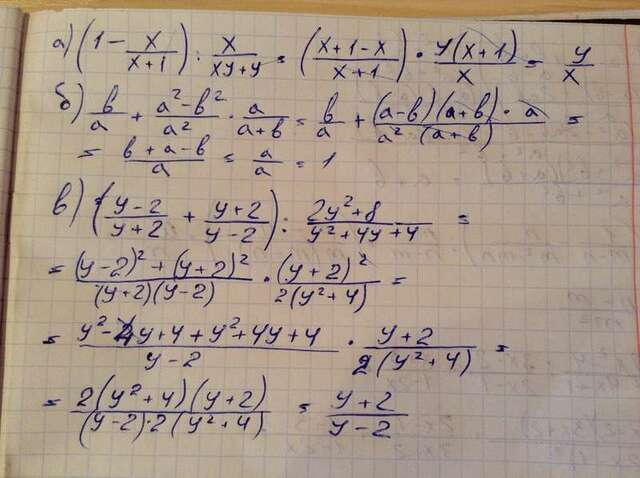 а) (1 - x/(x+1)) : x/(xy+y) = ((x+1-x)/(x+1)) · y(x+1)/x = y/x
б) b/a + (a²-b²)/a² · a/(a+b) = b/a + (a-b)(a+b)·a/(a²(a+b)) =
= (b+a-b)/a = a/a = 1
в) ((y-2)/(y+2) + (y+2)/(y-2)) : (2y²+8)/(y²+4y+4) =
= ((y-2)²+(y+2)²)/((y+2)(y-2)) · (y+2)²/(2(y²+4)) =
= (y²-4y+4+y²+4y+4)/(y-2) · (y+2)/(2(y²+4)) =
= 2(y²+4)(y+2)/((y-2)·2(y²+4)) = (y+2)/(y-2)